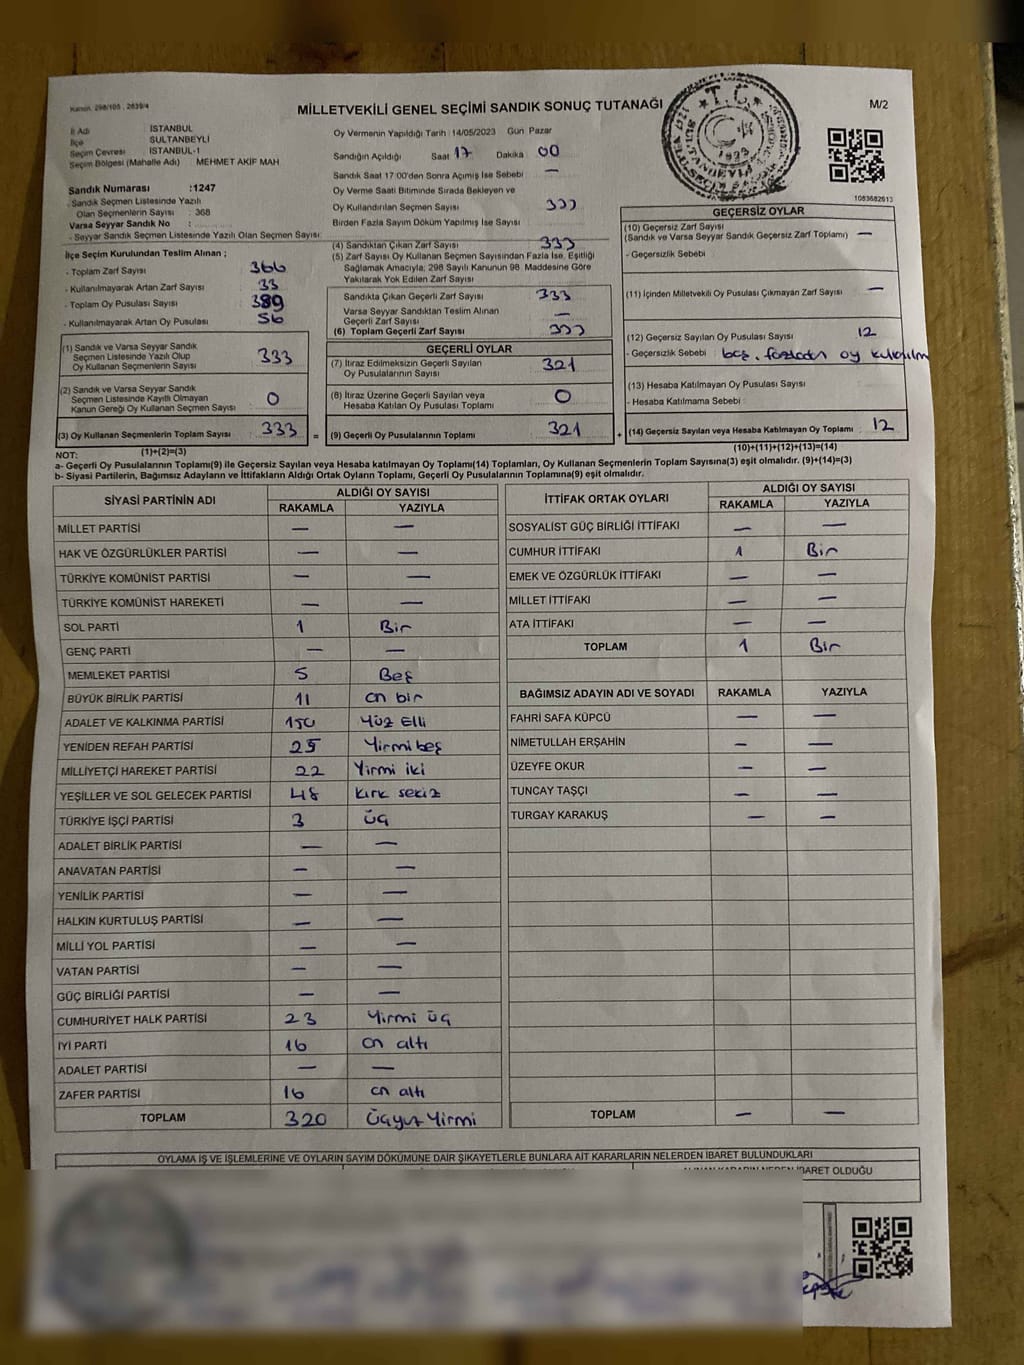 Kanun. 298/105 , 2839/4
MİLLETVEKİLİ GENEL SEÇİMİ SANDIK SONUÇ TUTANAĞI
M/2
İl Adı İSTANBUL
İlçe SULTANBEYLİ
Seçim Çevresi İSTANBUL-1
Seçim Bölgesi (Mahalle Adı) MEHMET AKİF MAH
Sandık Numarası :1247
- Sandık Seçmen Listesinde Yazılı
Olan Seçmenlerin Sayısı : 368
Varsa Seyyar Sandık No :
- Seyyar Sandık Seçmen Listesinde Yazılı Olan Seçmen Sayısı:
İlçe Seçim Kurulundan Teslim Alınan ;
- Toplam Zarf Sayısı 366
- Kullanılmayarak Artan Zarf Sayısı 33
- Toplam Oy Pusulası Sayısı 389
- Kullanılmayarak Artan Oy Pusulası 56
(1) Sandık ve Varsa Seyyar Sandık
Seçmen Listesinde Yazılı Olup
Oy Kullanan Seçmenlerin Sayısı 333
(2) Sandık ve Varsa Seyyar Sandık
Seçmen Listesinde Kayıtlı Olmayan
Kanun Gereği Oy Kullanan Seçmen Sayısı 0
(3) Oy Kullanan Seçmenlerin Toplam Sayısı 333 =
(1)+(2)=(3)
Oy Vermenin Yapıldığı Tarih : 14/05/2023 Gün Pazar
Sandığın Açıldığı Saat 17 Dakika 00
Sandık Saat 17:00'den Sonra Açılmış İse Sebebi —
Oy Verme Saati Bitiminde Sırada Bekleyen ve
Oy Kullandırılan Seçmen Sayısı 333
Birden Fazla Sayım Döküm Yapılmış İse Sayısı
(4) Sandıktan Çıkan Zarf Sayısı 333
(5) Zarf Sayısı Oy Kullanan Seçmen Sayısından Fazla İse, Eşitliği
Sağlamak Amacıyla, 298 Sayılı Kanunun 98. Maddesine Göre
Yakılarak Yok Edilen Zarf Sayısı
Sandıkta Çıkan Geçerli Zarf Sayısı 333
Varsa Seyyar Sandıktan Teslim Alınan
Geçerli Zarf Sayısı —
(6) Toplam Geçerli Zarf Sayısı 333
GEÇERLİ OYLAR
(7) İtiraz Edilmeksizin Geçerli Sayılan
Oy Pusulalarının Sayısı 321
(8) İtiraz Üzerine Geçerli Sayılan veya
Hesaba Katılan Oy Pusulası Toplamı 0
(9) Geçerli Oy Pusulalarının Toplamı 321 +
T.C.
1923
1083682613
GEÇERSİZ OYLAR
(10) Geçersiz Zarf Sayısı
(Sandık ve Varsa Seyyar Sandık Geçersiz Zarf Toplamı) —
- Geçersizlik Sebebi :
(11) İçinden Milletvekili Oy Pusulası Çıkmayan Zarf Sayısı —
(12) Geçersiz Sayılan Oy Pusulası Sayısı 12
- Geçersizlik Sebebi : boş, fazladan oy
(13) Hesaba Katılmayan Oy Pusulası Sayısı
- Hesaba Katılmama Sebebi :
(14) Geçersiz Sayılan veya Hesaba Katılmayan Oy Toplamı 12
(10)+(11)+(12)+(13)=(14)
NOT:
a- Geçerli Oy Pusulalarının Toplamı(9) ile Geçersiz Sayılan veya Hesaba katılmayan Oy Toplamı(14) Toplamları, Oy Kullanan Seçmenlerin Toplam Sayısına(3) eşit olmalıdır. (9)+(14)=(3)
b- Siyasi Partilerin, Bağımsız Adayların ve İttifakların Aldığı Ortak Oyların Toplamı, Geçerli Oy Pusulalarının Toplamına(9) eşit olmalıdır.
SİYASİ PARTİNİN ADI ALDIĞI OY SAYISI
RAKAMLA YAZIYLA
MİLLET PARTİSİ — —
HAK VE ÖZGÜRLÜKLER PARTİSİ — —
TÜRKİYE KOMÜNİST PARTİSİ — —
TÜRKİYE KOMÜNİST HAREKETİ — —
SOL PARTİ 1 Bir
GENÇ PARTİ — —
MEMLEKET PARTİSİ 5 Beş
BÜYÜK BİRLİK PARTİSİ 11 on bir
ADALET VE KALKINMA PARTİSİ 150 Yüz Elli
YENİDEN REFAH PARTİSİ 25 Yirmi beş
MİLLİYETÇİ HAREKET PARTİSİ 22 Yirmi iki
YEŞİLLER VE SOL GELECEK PARTİSİ 48 Kırk sekiz
TÜRKİYE İŞÇİ PARTİSİ 3 üç
ADALET BİRLİK PARTİSİ — —
ANAVATAN PARTİSİ — —
YENİLİK PARTİSİ — —
HALKIN KURTULUŞ PARTİSİ — —
MİLLİ YOL PARTİSİ — —
VATAN PARTİSİ — —
GÜÇ BİRLİĞİ PARTİSİ — —
CUMHURİYET HALK PARTİSİ 23 Yirmi üç
İYİ PARTİ 16 on altı
ADALET PARTİSİ — —
ZAFER PARTİSİ 16 on altı
TOPLAM 320 Üçyüz Yirmi
İTTİFAK ORTAK OYLARI ALDIĞI OY SAYISI
RAKAMLA YAZIYLA
SOSYALİST GÜÇ BİRLİĞİ İTTİFAKI — —
CUMHUR İTTİFAKI 1 Bir
EMEK VE ÖZGÜRLÜK İTTİFAKI — —
MİLLET İTTİFAKI — —
ATA İTTİFAKI — —
TOPLAM 1 Bir
BAĞIMSIZ ADAYIN ADI VE SOYADI RAKAMLA YAZIYLA
FAHRİ SAFA KÜPCÜ — —
NİMETULLAH ERŞAHİN — —
ÜZEYFE OKUR — —
TUNCAY TAŞÇI — —
TURGAY KARAKUŞ — —
TOPLAM — —
OYLAMA İŞ VE İŞLEMLERİNE VE OYLARIN SAYIM DÖKÜMÜNE DAİR ŞİKAYETLERLE BUNLARA AİT KARARLARIN NELERDEN İBARET BULUNDUKLARI
ALINAN KARARIN NEDEN İBARET OLDUĞU